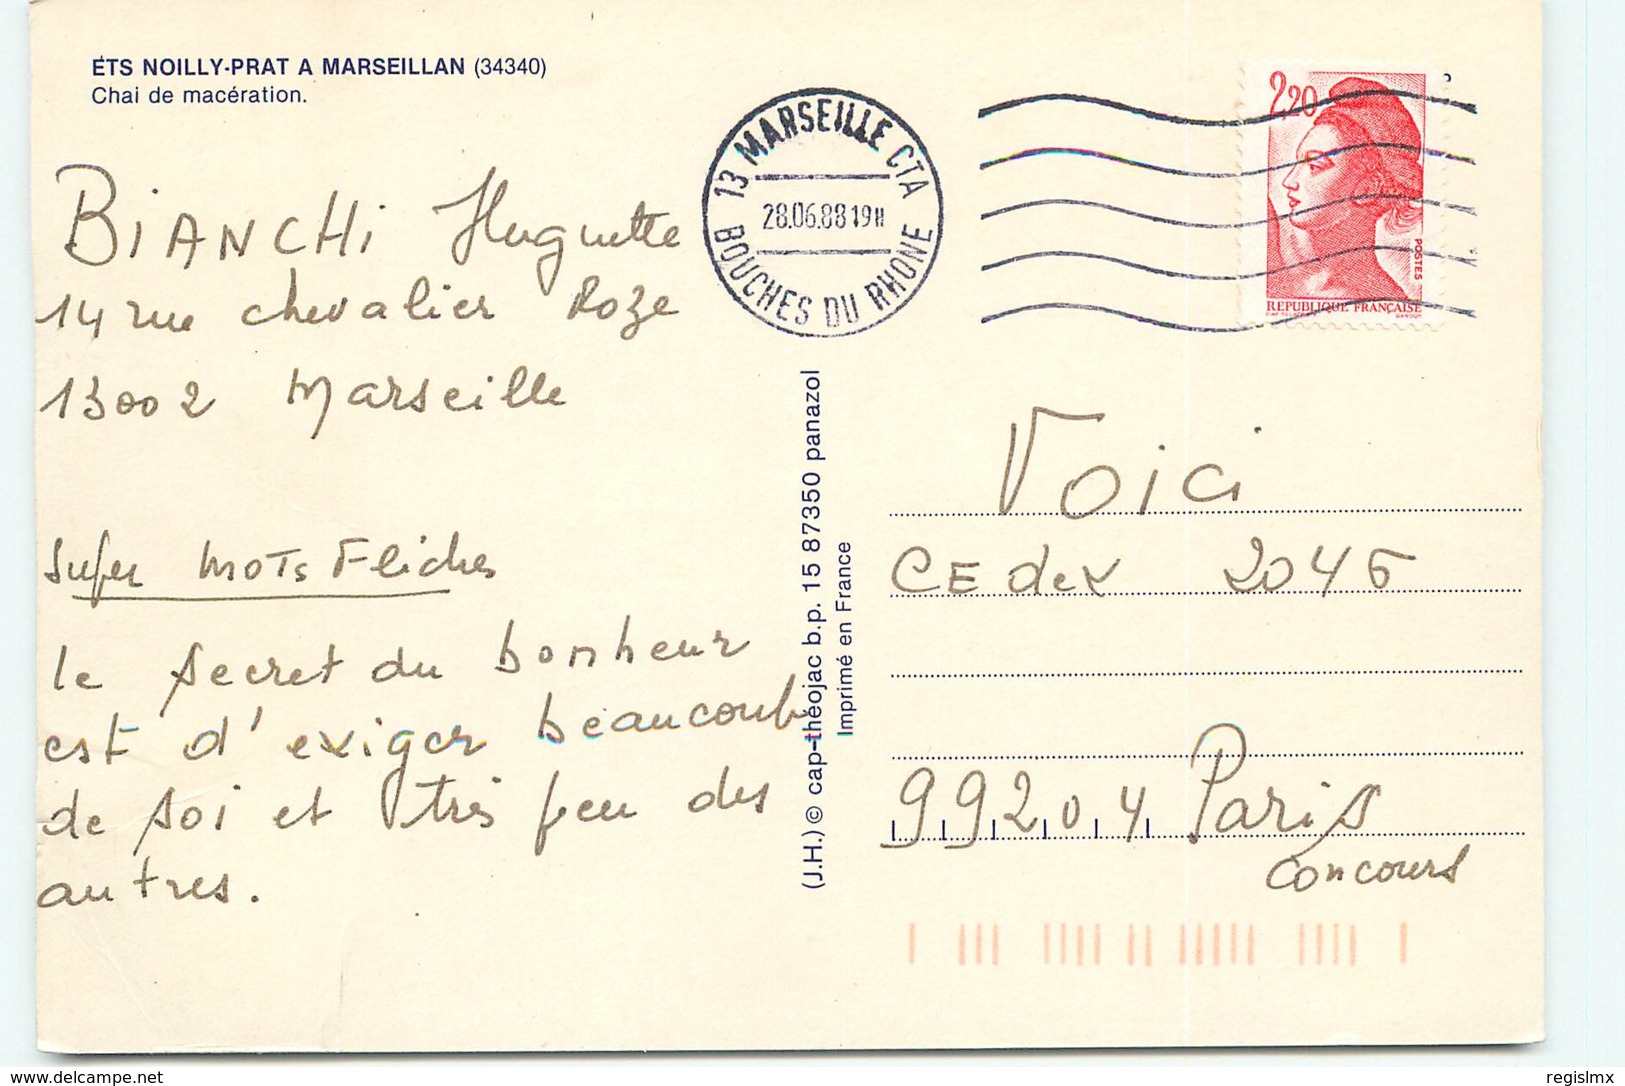 ÉTS NOILLY-PRAT A MARSEILLAN (34340)
Chai de macération.
BiANCHi Huguette
14 rue chevalier Roze
13002 Marseille
Super MOTs Fléchés
le secret du bonheur
est d'exiger beaucoup
de soi et très peu des
autres.
13 MARSEILLE CTA
28.06.88 19H
BOUCHES DU RHONE
2,20
POSTES
REPUBLIQUE FRANÇAISE
GANDON
(J.H.) © cap-théojac b.p. 15 87350 panazol
Imprimé en France
Voici
CEdex 2046
99204 Paris
concours
www.delcampe.net
regislmx